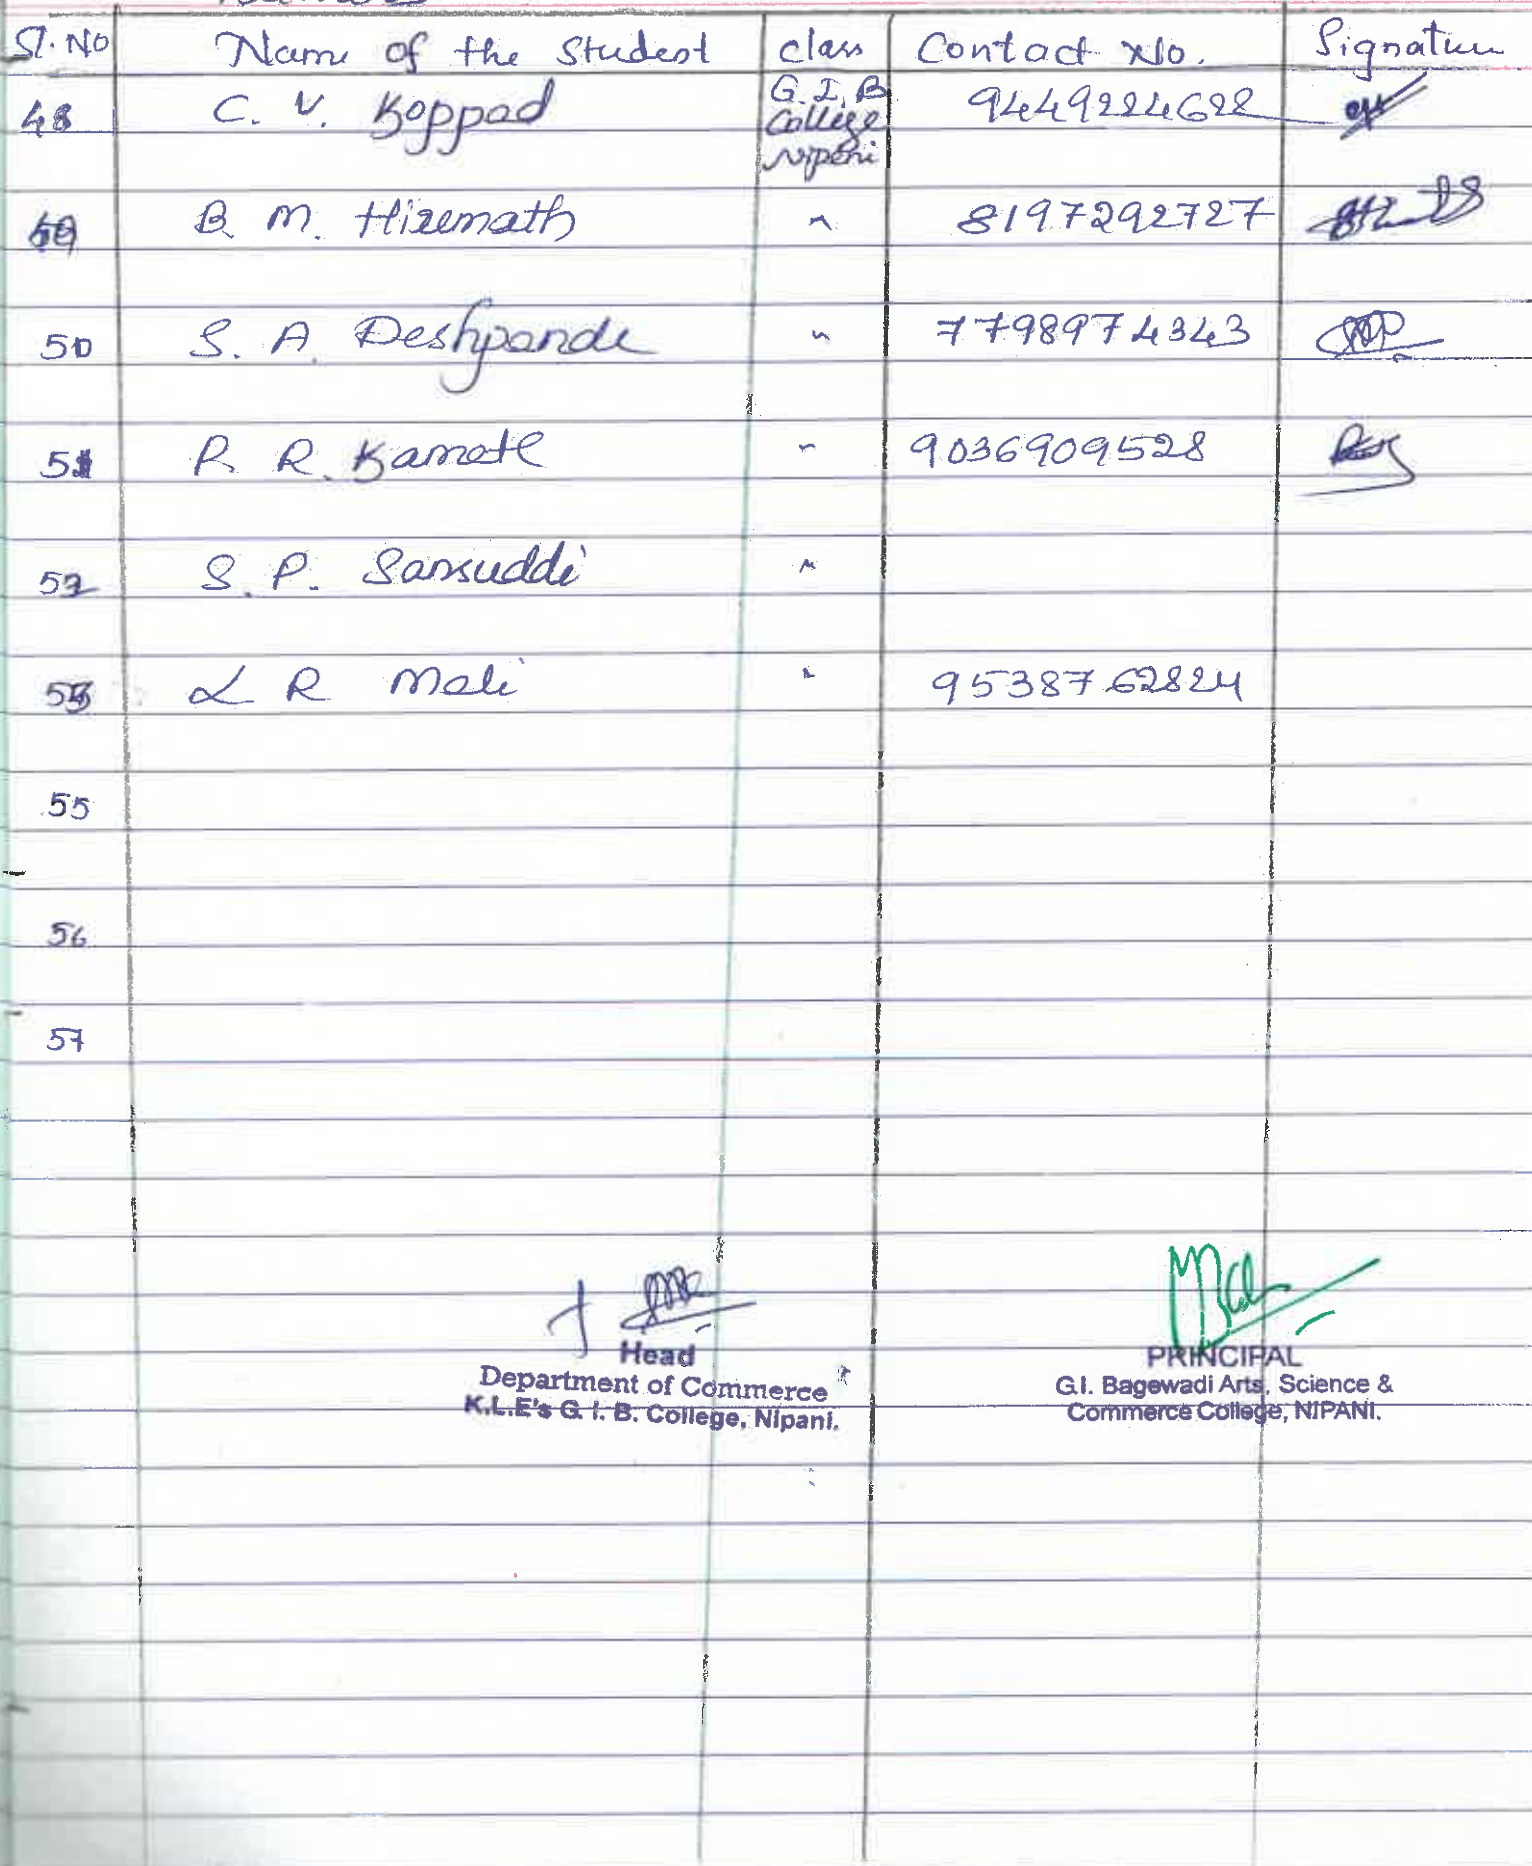 Sl. No Name of the Student class Contact No. Signature
48 C. V. Koppad G. I. B College Nipani 9449224628
49 B. M. Hiremath " 8197292727
50 S. A. Deshpande " 7798974343
51 R. R. Kamate " 9036909528
52 S. P. Sansuddi "
53 L R Mali " 9538762824
55
56
57
Head
Department of Commerce
K.L.E's G. I. B. College, Nipani.
PRINCIPAL
G.I. Bagewadi Arts, Science &
Commerce College, NIPANI.